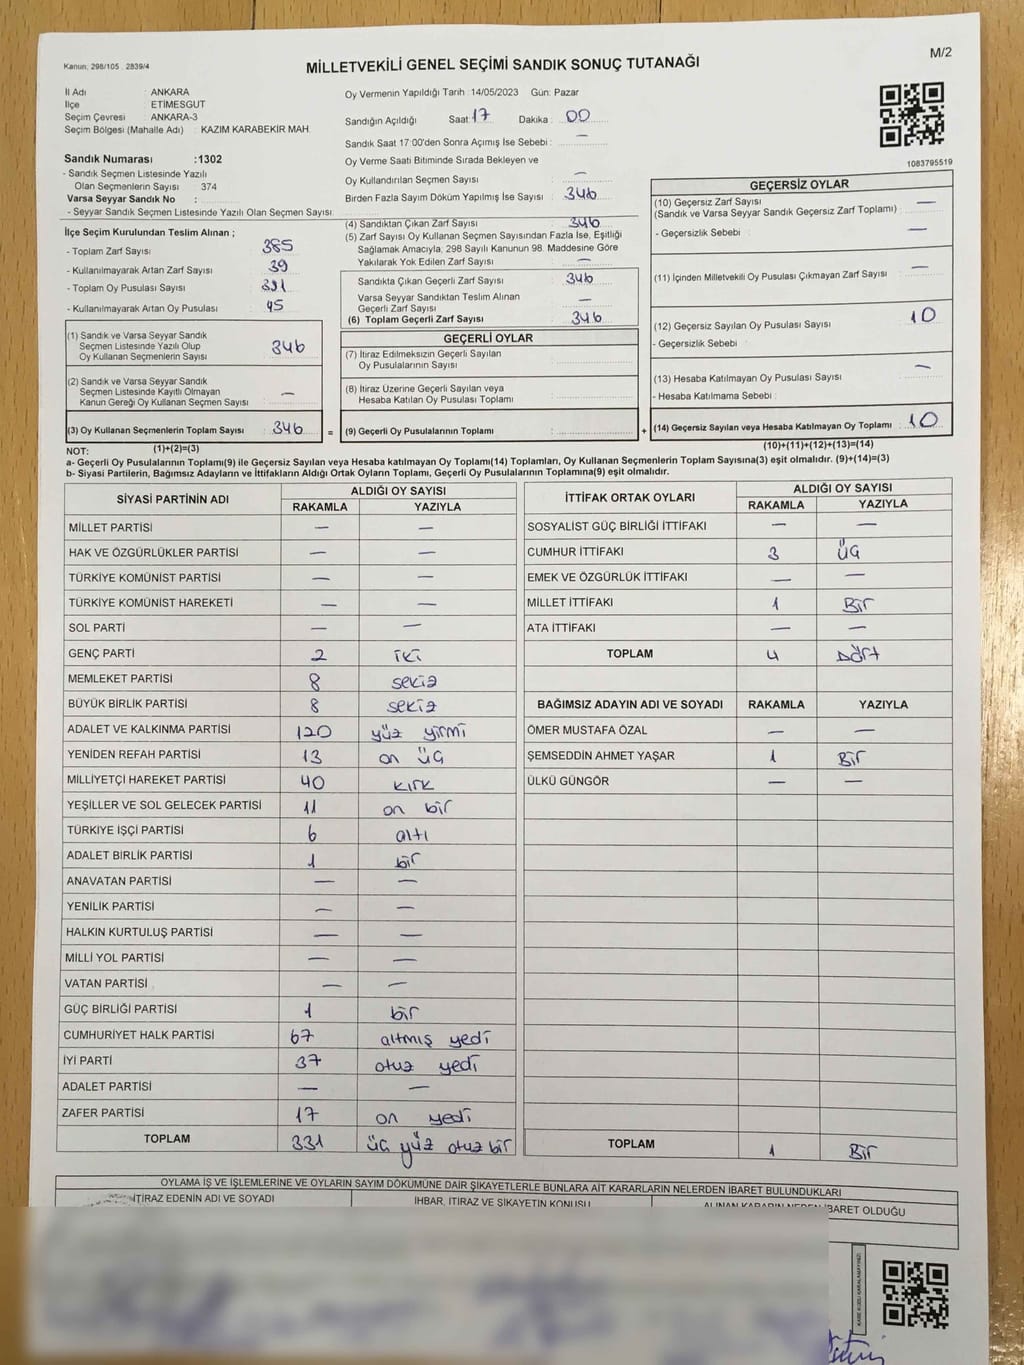 Kanun: 298/105 . 2839/4
M/2
MİLLETVEKİLİ GENEL SEÇİMİ SANDIK SONUÇ TUTANAĞI
İl Adı : ANKARA
İlçe : ETİMESGUT
Seçim Çevresi : ANKARA-3
Seçim Bölgesi (Mahalle Adı) : KAZIM KARABEKİR MAH.
Sandık Numarası :1302
- Sandık Seçmen Listesinde Yazılı
Olan Seçmenlerin Sayısı : 374
Varsa Seyyar Sandık No :
- Seyyar Sandık Seçmen Listesinde Yazılı Olan Seçmen Sayısı
Oy Vermenin Yapıldığı Tarih :14/05/2023 Gün: Pazar
Sandığın Açıldığı Saat: 17 Dakika : 00
Sandık Saat 17:00'den Sonra Açımış İse Sebebi : —
Oy Verme Saati Bitiminde Sırada Bekleyen ve
Oy Kullandırılan Seçmen Sayısı —
Birden Fazla Sayım Döküm Yapılmış İse Sayısı : 346
1083795519
İlçe Seçim Kurulundan Teslim Alınan ;
- Toplam Zarf Sayısı : 385
- Kullanılmayarak Artan Zarf Sayısı : 39
- Toplam Oy Pusulası Sayısı : 391
- Kullanılmayarak Artan Oy Pusulası : 45
(1) Sandık ve Varsa Seyyar Sandık
Seçmen Listesinde Yazılı Olup
Oy Kullanan Seçmenlerin Sayısı : 346
(2) Sandık ve Varsa Seyyar Sandık
Seçmen Listesinde Kayıtlı Olmayan
Kanun Gereği Oy Kullanan Seçmen Sayısı —
(3) Oy Kullanan Seçmenlerin Toplam Sayısı : 346
(1)+(2)=(3)
(4) Sandıktan Çıkan Zarf Sayısı : 346
(5) Zarf Sayısı Oy Kullanan Seçmen Sayısından Fazla İse, Eşitliği
Sağlamak Amacıyla, 298 Sayılı Kanunun 98. Maddesine Göre
Yakılarak Yok Edilen Zarf Sayısı : —
Sandıkta Çıkan Geçerli Zarf Sayısı : 346
Varsa Seyyar Sandıktan Teslim Alınan
Geçerli Zarf Sayısı : —
(6) Toplam Geçerli Zarf Sayısı : 346
GEÇERLİ OYLAR
(7) İtiraz Edilmeksizin Geçerli Sayılan
Oy Pusulalarının Sayısı :
(8) İtiraz Üzerine Geçerli Sayılan veya
Hesaba Katılan Oy Pusulası Toplamı :
= (9) Geçerli Oy Pusulalarının Toplamı : +
GEÇERSİZ OYLAR
(10) Geçersiz Zarf Sayısı : —
(Sandık ve Varsa Seyyar Sandık Geçersiz Zarf Toplamı)
- Geçersizlik Sebebi : —
(11) İçinden Milletvekili Oy Pusulası Çıkmayan Zarf Sayısı : —
(12) Geçersiz Sayılan Oy Pusulası Sayısı : 10
- Geçersizlik Sebebi :
(13) Hesaba Katılmayan Oy Pusulası Sayısı : —
- Hesaba Katılmama Sebebi :
(14) Geçersiz Sayılan veya Hesaba Katılmayan Oy Toplamı : 10
(10)+(11)+(12)+(13)=(14)
NOT:
a- Geçerli Oy Pusulalarının Toplamı(9) ile Geçersiz Sayılan veya Hesaba katılmayan Oy Toplamı(14) Toplamları, Oy Kullanan Seçmenlerin Toplam Sayısına(3) eşit olmalıdır. (9)+(14)=(3)
b- Siyasi Partilerin, Bağımsız Adayların ve İttifakların Aldığı Ortak Oyların Toplamı, Geçerli Oy Pusulalarının Toplamına(9) eşit olmalıdır.
SİYASİ PARTİNİN ADI ALDIĞI OY SAYISI
RAKAMLA YAZIYLA
MİLLET PARTİSİ — —
HAK VE ÖZGÜRLÜKLER PARTİSİ — —
TÜRKİYE KOMÜNİST PARTİSİ — —
TÜRKİYE KOMÜNİST HAREKETİ — —
SOL PARTİ — —
GENÇ PARTİ 2 iki
MEMLEKET PARTİSİ 8 sekiz
BÜYÜK BİRLİK PARTİSİ 8 sekiz
ADALET VE KALKINMA PARTİSİ 120 yüz yirmi
YENİDEN REFAH PARTİSİ 13 on üç
MİLLİYETÇİ HAREKET PARTİSİ 40 kırk
YEŞİLLER VE SOL GELECEK PARTİSİ 11 on bir
TÜRKİYE İŞÇİ PARTİSİ 6 altı
ADALET BİRLİK PARTİSİ 1 bir
ANAVATAN PARTİSİ — —
YENİLİK PARTİSİ — —
HALKIN KURTULUŞ PARTİSİ — —
MİLLİ YOL PARTİSİ — —
VATAN PARTİSİ — —
GÜÇ BİRLİĞİ PARTİSİ 1 bir
CUMHURİYET HALK PARTİSİ 67 altmış yedi
İYİ PARTİ 37 otuz yedi
ADALET PARTİSİ — —
ZAFER PARTİSİ 17 on yedi
TOPLAM 331 üç yüz otuz bir
İTTİFAK ORTAK OYLARI ALDIĞI OY SAYISI
RAKAMLA YAZIYLA
SOSYALİST GÜÇ BİRLİĞİ İTTİFAKI — —
CUMHUR İTTİFAKI 3 üç
EMEK VE ÖZGÜRLÜK İTTİFAKI — —
MİLLET İTTİFAKI 1 Bir
ATA İTTİFAKI — —
TOPLAM 4 Dört
BAĞIMSIZ ADAYIN ADI VE SOYADI RAKAMLA YAZIYLA
ÖMER MUSTAFA ÖZAL — —
ŞEMSEDDİN AHMET YAŞAR 1 Bir
ÜLKÜ GÜNGÖR — —
TOPLAM 1 Bir
OYLAMA İŞ VE İŞLEMLERİNE VE OYLARIN SAYIM DÖKÜMÜNE DAİR ŞİKAYETLERLE BUNLARA AİT KARARLARIN NELERDEN İBARET BULUNDUKLARI
İTİRAZ EDENİN ADI VE SOYADI
İHBAR, İTİRAZ VE ŞİKAYETİN KONUSU
ALINAN KARARIN NEDEN İBARET OLDUĞU